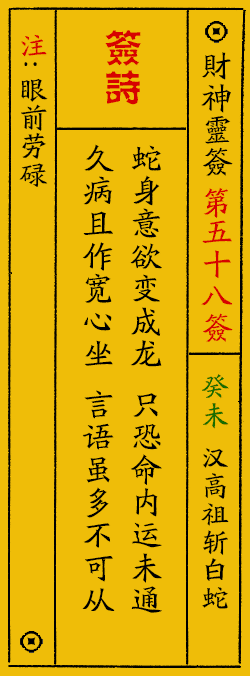 財神靈簽 第五十八簽
癸未 汉高祖斩白蛇
簽詩
蛇身意欲变成龙 只恐命内运未通
久病且作宽心坐 言语虽多不可从
注:眼前劳碌